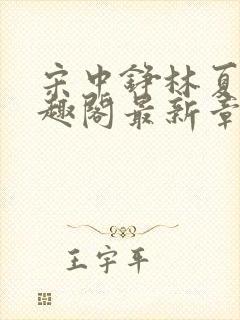 宋中铮林夏
趣阁最新章
王宇平